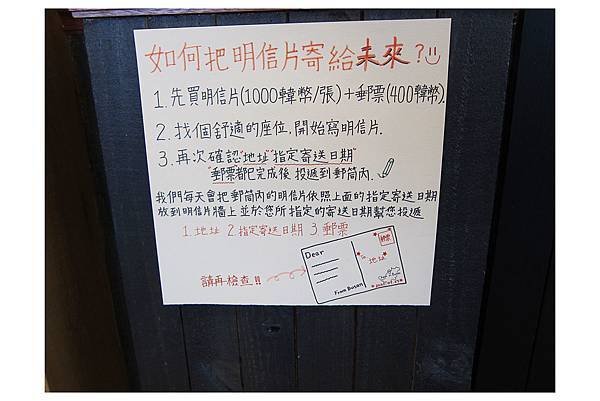 如何把明信片寄給未來?
1.先買明信片(1000韓幣/張)+郵票(400韓幣).
2.找個舒適的座位,開始寫明信片.
3.再次確認"地址""指定寄送日期"
"郵票"都已完成後 投遞到郵筒內.
我們每天會把郵筒內的明信片依照上面的指定寄送日期
放到明信片牆上並於您所指定的寄送日期幫您投遞
1.地址 2.指定寄送日期 3.郵票
請再檢查!!
Dear
郵票
地址
From Busan